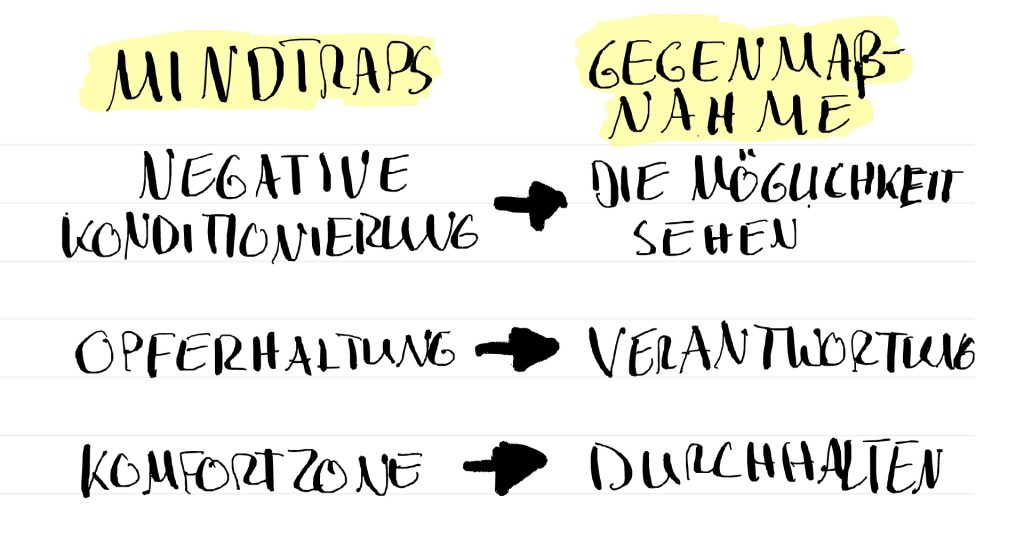 MINDTRAPS
GEGENMAß-
NAHME
NEGATIVE
KONDITIONIERUNG
DIE MÖGLICHKEIT
SEHEN
OPFERHALTUNG
VERANTWORTUNG
KOMFORTZONE
DURCHHALTEN